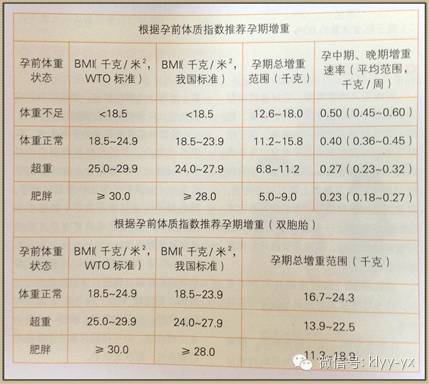 根据孕前体质指数推荐孕期增重
孕前体重状态 BMI(千克/米², WTO标准) BMI(千克/米², 我国标准) 孕期总增重范围(千克) 孕中期、晚期增重速率(平均范围,千克/周)
体重不足 <18.5 <18.5 12.6~18.0 0.50(0.45~0.60)
体重正常 18.5~24.9 18.5~23.9 11.2~15.8 0.40(0.36~0.45)
超重 25.0~29.9 24.0~27.9 6.8~11.2 0.27(0.23~0.32)
肥胖 ≥30.0 ≥28.0 5.0~9.0 0.23(0.18~0.27)
根据孕前体质指数推荐孕期增重(双胞胎)
孕前体重状态 BMI(千克/米², WTO标准) BMI(千克/米², 我国标准) 孕期总增重范围(千克)
体重正常 18.5~24.9 18.5~23.9 16.7~24.3
超重 25.0~29.9 24.0~27.9 13.9~22.5
肥胖 ≥30.0 ≥28.0 11.3~18.9
微信号: klyy-yx